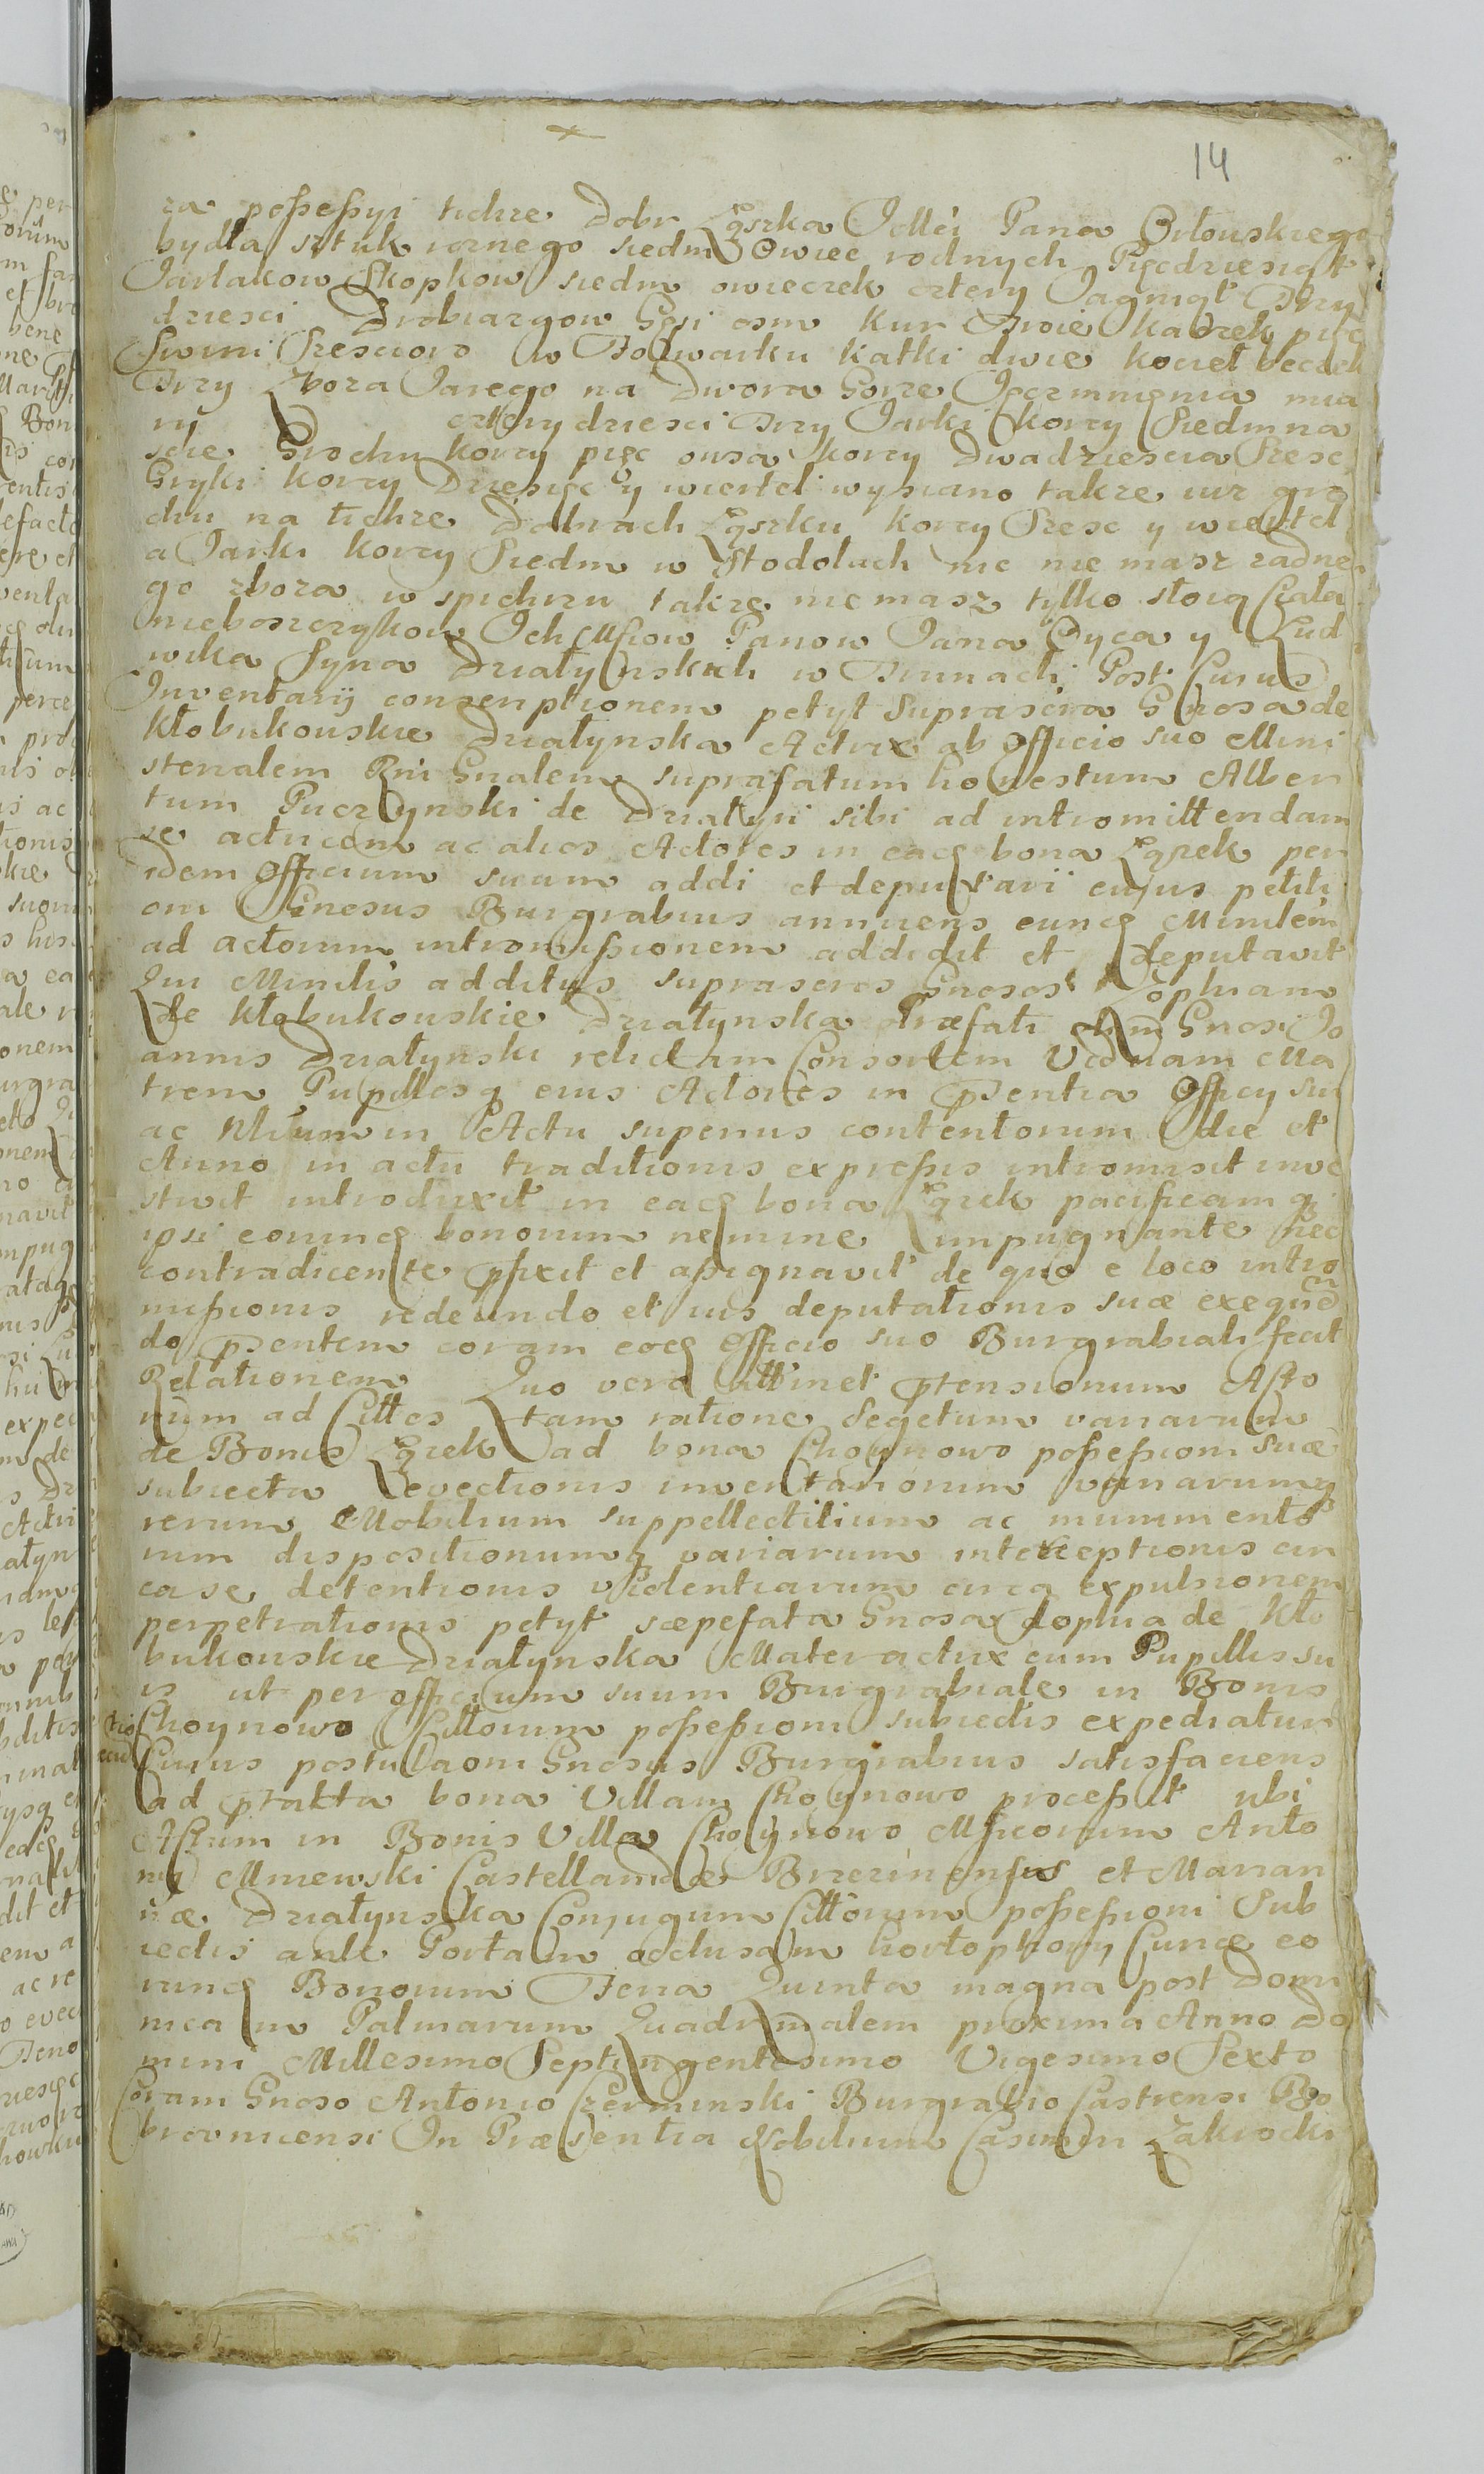 14
za possessyi tichze Dobr Łąszka JMci Pana Orłowskiego
bydła sztuk roznego siedm Owiec rodnych Pięcdziesiąt
Jarlakow Skopkow siedm owieczek cztery Jagniąt Trzy
dziesci Drobiazgow Gęsi osm kur Troie kaczek pięc
Swini Szescioro w Folwarku katki dwie kocieł beczek
Trzy Zboza Jarego na Dwora Gorze Jęczmnienia mia
ry czterydziesci Trzy Jarki korcy Siedmna
scie Grochu korcy pięc owsa korcy Dwadziescia Szesc
Gryki korcy Dziesięc y wiertel wysiano takze iuz gro
chu na tichze Dobrach Łąszku korcy Szesc y wiertel
a Jarki korcy Siedm w Stodolach nic nie masz zadne
go zboza w spichrzu takze nie masz tylko stoią Ciała
nieboszczykow Ich Mciow Panow Jana Oyca y Lud
wika Syna Działynskich w Trunach Post Cuius
Inventarij conscriptionem petyt Suprascra Gnosa de
Kłobukowskie Działynska Actrix ab Officio suo Mini
sterialem Rni Gnalem suprafatum honestum Alber
tum Puczynski de Działyn sibi ad intromittendam
se actricem ac alios Actores in eadq bona Łąszek per
idem Officium suum addi et deputari cujus petiti
oni Gnosus Burgrabius annuens eundq Ministem
ad actorum intromissionem addidit et deputavit
Qui Minilis additus suprascros Gnosos Zophiam
de Kłobukowskie Działynska præfati olim Gnosi Jo
annis Działynski relictam Consortem Viduam Ma
trem Pupillosq eius Actores in psentia Officy sui
ac Nlium in Actu superius contentorum die et
Anno in actu traditionis expressis intromisit inve
stivit introduxit in eadq bona Łąszek pacificamq
ipsi eorundq bonorum nemine impugnante nec
contradicente pfixit et assignavit de quo e loco intro
missionis redeundo et ius deputationis suæ exequen
do psentem coram eodq Officio suo Burgrabiali fecit
Relationem Quo vero attinet ptensionum Acto
rum ad Cittos tam ratione Segetum variarum
de Bonis Łąszek ad bona Choynowo possessioni suæ
subiecta evectionis inventariorum variarumq
rerum Mobilium suppellectilium ac munimento
rum dispositionumq variarum interceptionis cir
ca se detentionis violentiarum circa expulsionem
perpetrationis petyt sæpefata Gnosa Zophia de Kło
bukowskie Działynska Mater actrix cum Pupillis su
is ut per officium suum Burgrabiale in Bonis
Choynowo Cittorum possessioni subiectis expediatur
Cuius postulaoni Gnosus Burgrabius satisfaciens
ad ptakta bona Villam Choynowo processit ubi
Actum in Bonis Villa Choynowo Mficorum Anto
ny Mniewski Castellanidæ Brzezinensis et Marian
næ Działynska Conjugum Cittorum possessioni Sub
iectis ante Portam occlusam Curiæ eo
rundq Bonorum Feria Quinta magna post Domi
nicam Palmarum Quadrmalem proxima Anno Do
mini Millesimo Septingentesimo Vigesimo Sexto
Coram Gnoso Antonio Czerminski Burgrabio Castrensi Bo
browniensi In Præsentia Nobilium Casimiri Zakrocki